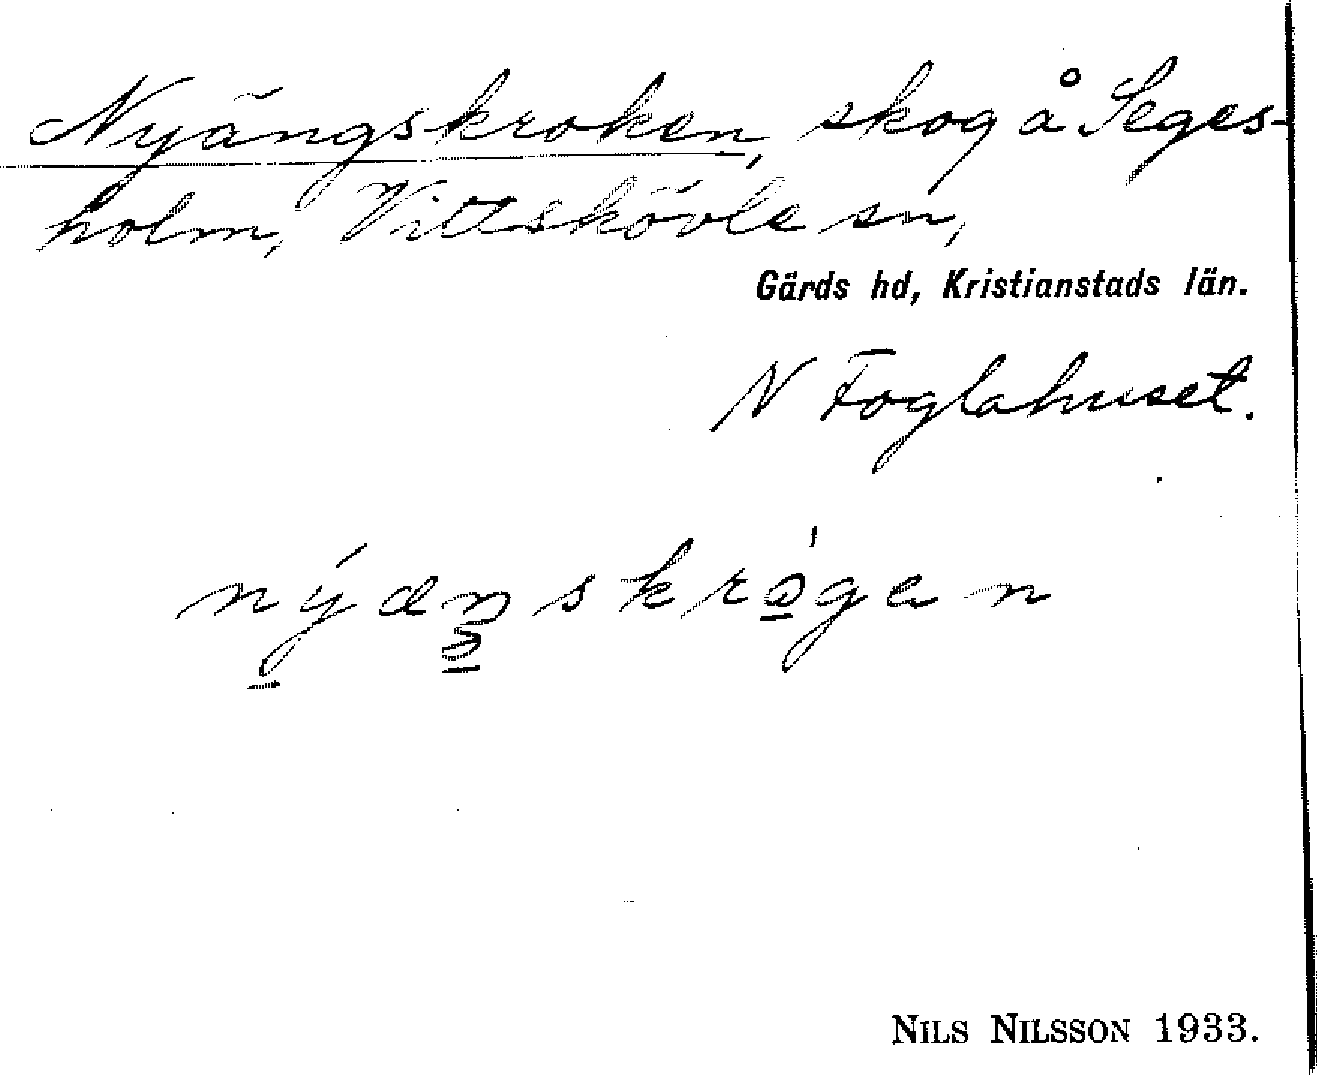 Nyängskroken, skog å Seges-
holm, Vittskövle sn,
Gärds hd, Kristianstads län.
N Foglahuset.
nýæŋskrógen
NILS NILSSON 1933.